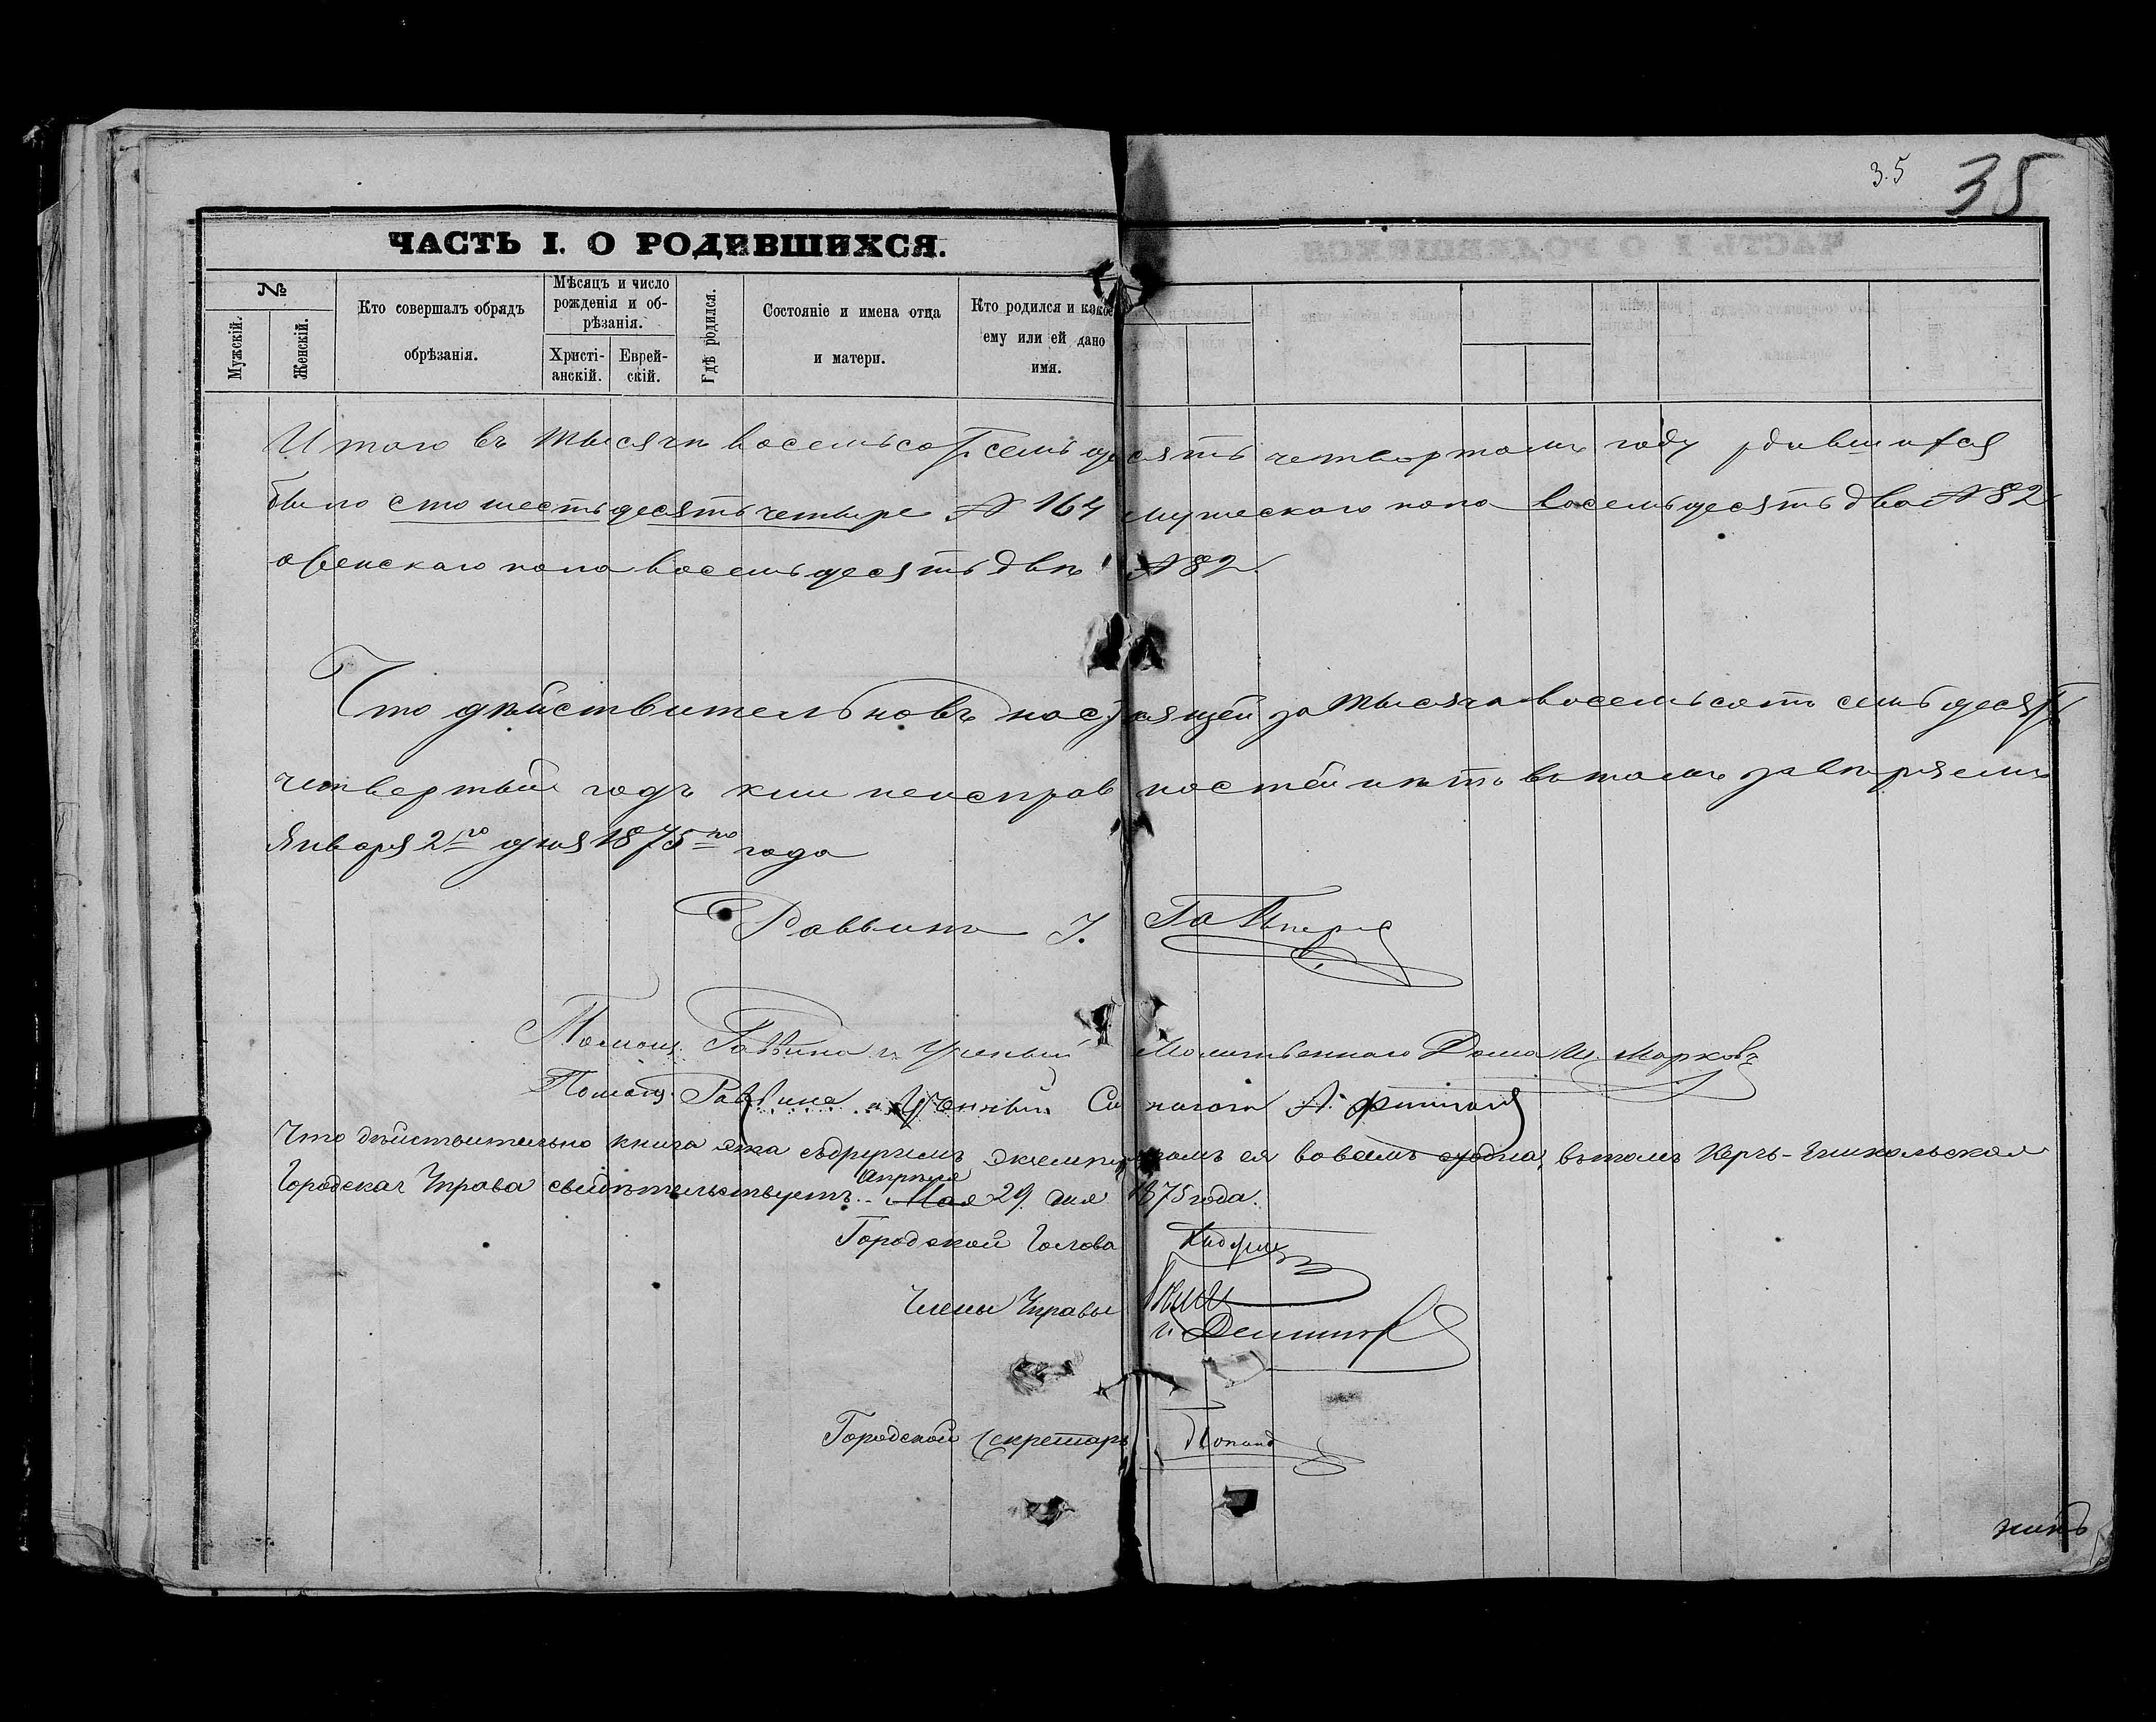 3.5 35
ЧАСТЬ I. О РОДИВШИХСЯ.
№
Мужскій.
Женскій.
Кто совершалъ обрядъ
обрѣзанія.
Мѣсяцъ и число
рожденія и об-
рѣзанія.
Христі-
анскій.
Еврей-
скій.
Гдѣ родился.
Состояніе и имена отца
и матери.
Кто родился и какое
ему или ей дано
имя.
Итого въ тысяча восемьсот семьдесятъ четвертомъ году рдившихся
было сто шестьдесятъ четыре № 164 мужескаго пола восемьдесятъ два № 82
женскаго пола восемьдесятъ двѣ № 82.
Что дѣйствительно въ настоящей за тысяча восемьсотъ семьдесят
четвертый годъ книг неисправностей нѣтъ въ томъ завѣряемъ
Января 2го дня 1875го года
Раввинъ І.
Помощ. Раввина и Ученый Молитвеннаго Дома Ш. Марковъ
Помощ. Раввина и Ученый Синагоги А.
Что дѣйствительно книга эта съ другимъ экземпляромъ ея во всемъ сходна, въ томъ Керчь-Еникольская
Городская Управа свидѣтельствуетъ. Апрѣля Мая 29 дня 1875 года.
Городской Голова
Члены Управы
Городской Секретарь